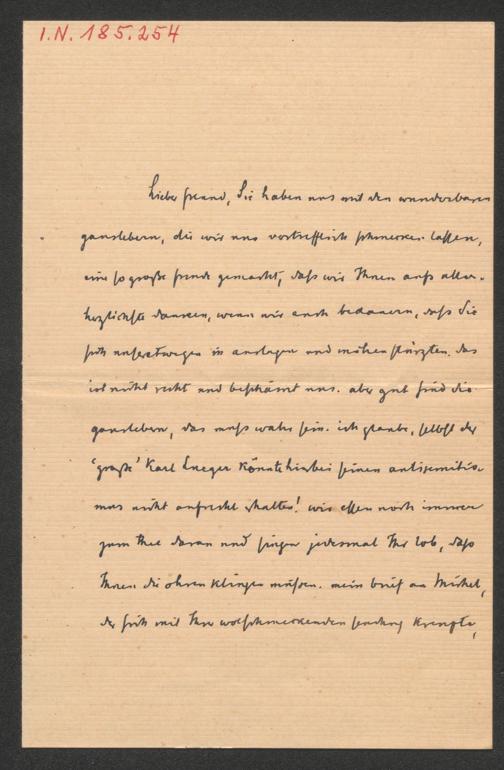 I.N. 185.254
Lieber freund, Sie haben uns mit den wunderbaren
ganslebern, die wir uns vortrefflich schmecken lassen,
eine so große freude gemacht, daß wir Ihnen aufs aller-
herzlichste danken, wenn wir auch bedauern, daß Sie
sich unsertwegen in auslagen und mühen stürzten. das
ist nicht recht und beschämt uns. aber gut sind die
ganslebern, das muß wahr sein. ich glaube, selbst der
'große' Karl Lueger könnte hierbei seinen antisemitis-
mus nicht aufrecht erhalten! wir essen noch immer
zum thee daran und singen jedesmal Ihr lob, daß
Ihnen die ohren klingen müssen. mein brief an Michel,
der sich mit Ihrer wolschmeckenden sendung kreuzte,